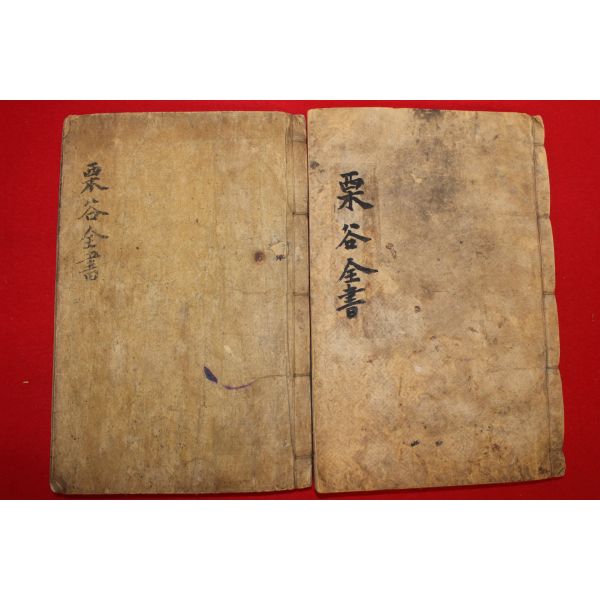 栗谷全書
栗谷全書